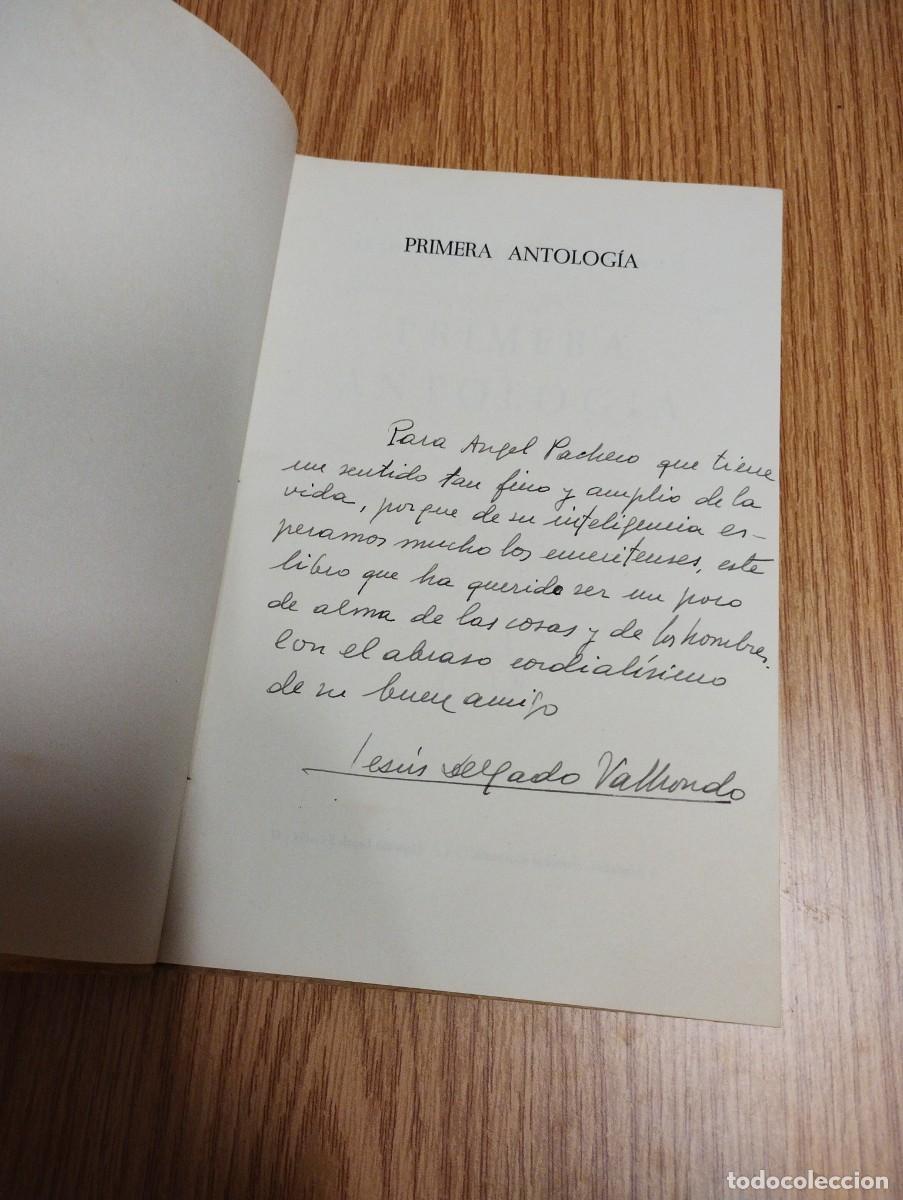 PRIMERA ANTOLOGÍA
PRIMERA
ANTOLOGIA
Para Angel Pacheco que tiene
un sentido tan fino y amplio de la
vida, porque de su inteligencia es-
peramos mucho los emeritenses, este
libro que ha querido ser un poco
de alma de las cosas y de los hombres.
Con el abraso cordialísimo
de su buen amigo
Jesús Delgado Valhondo
todocoleccion